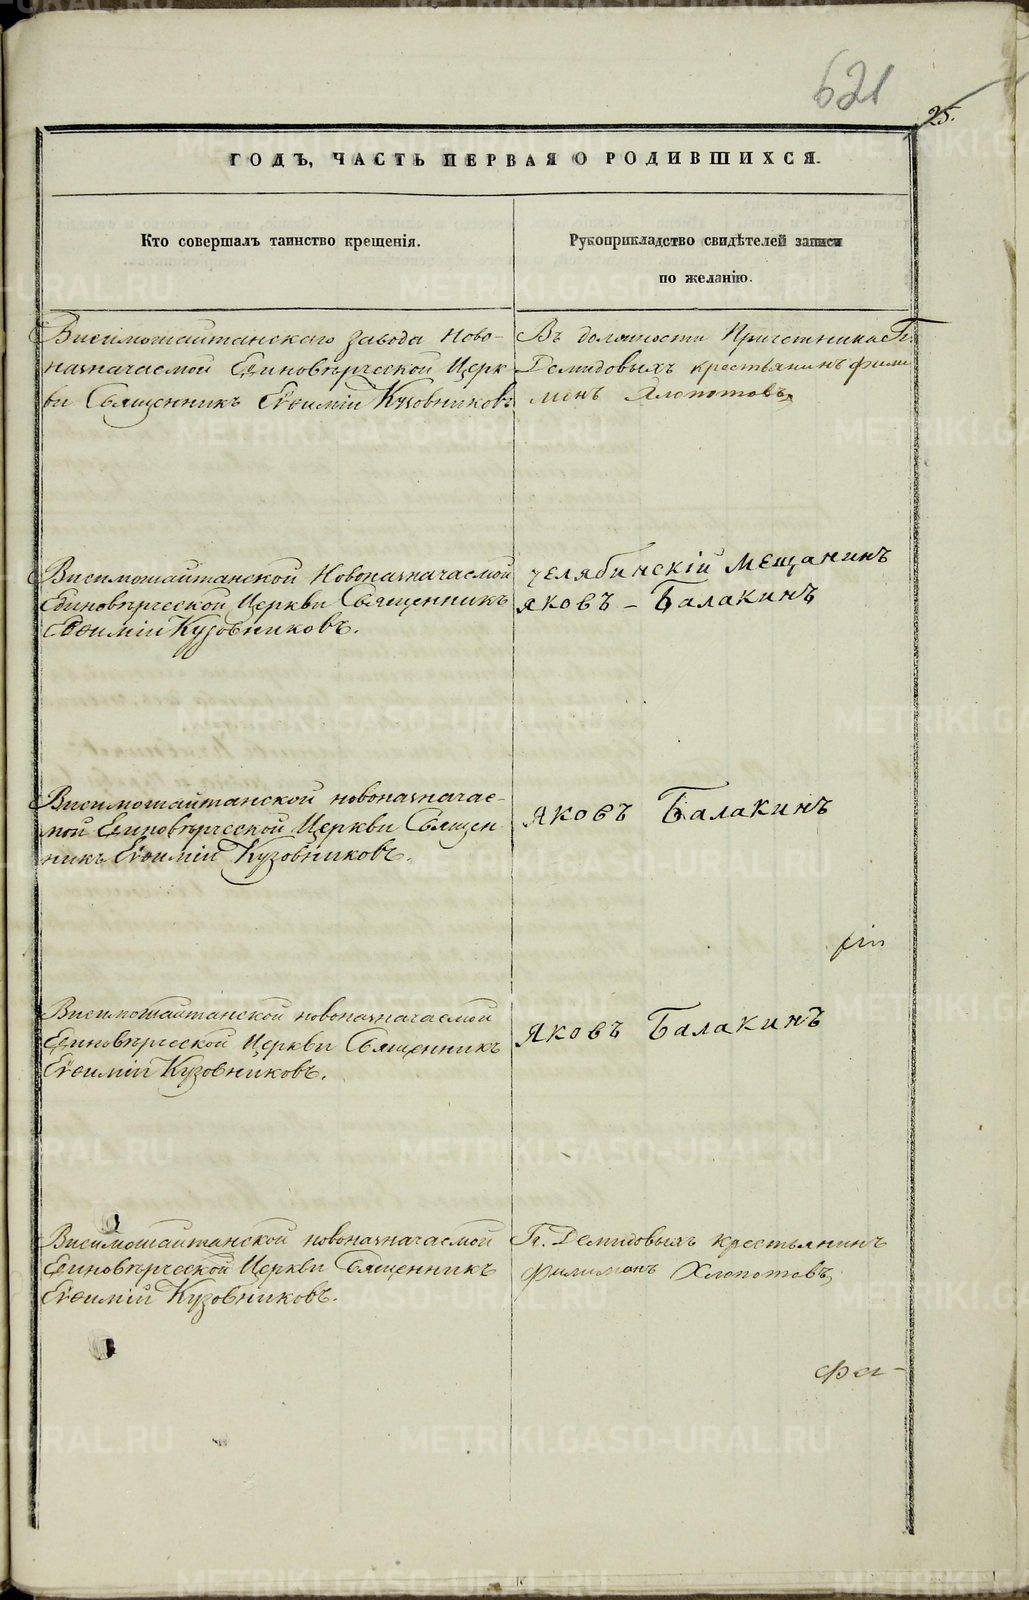 621
25.
ГОДЪ, ЧАСТЬ ПЕРВАЯ О РОДИВШИХСЯ.
Кто совершалъ таинство крещенія.
Рукоприкладство свидѣтелей записи
по желанію.
Висимошайтанскаго завода Ново-
назначаемой Единовѣрческой Церк
ви Священникъ Евѳимій Кузовниковъ
Въ должности Причетника Гг.
Демидовыхъ крестьянинъ Фили
монъ Хлопотовъ
Висимошайтанской Новоназначаемой
Единовѣрческой Церкви Священникъ
Евѳимій Кузовниковъ.
челябинскій мещанинъ
яковъ - Балакинъ
Висимошайтанской новоназначае-
мой Единовѣрческой Церкви Священ
никъ Евѳимій Кузовниковъ.
яковъ Балакинъ
Висимошайтанской новоназначаемой
Единовѣрческой Церкви Священникъ
Евѳимій Кузовниковъ.
яковъ Балакинъ
Висимошайтанской новоназначаемой
Единовѣрческой Церкви Священникъ
Евѳимій Кузовниковъ.
Гг. Демидовыхъ крестьянинъ
Филимонъ Хлопотовъ
METRIKI.GASO-URAL.RU